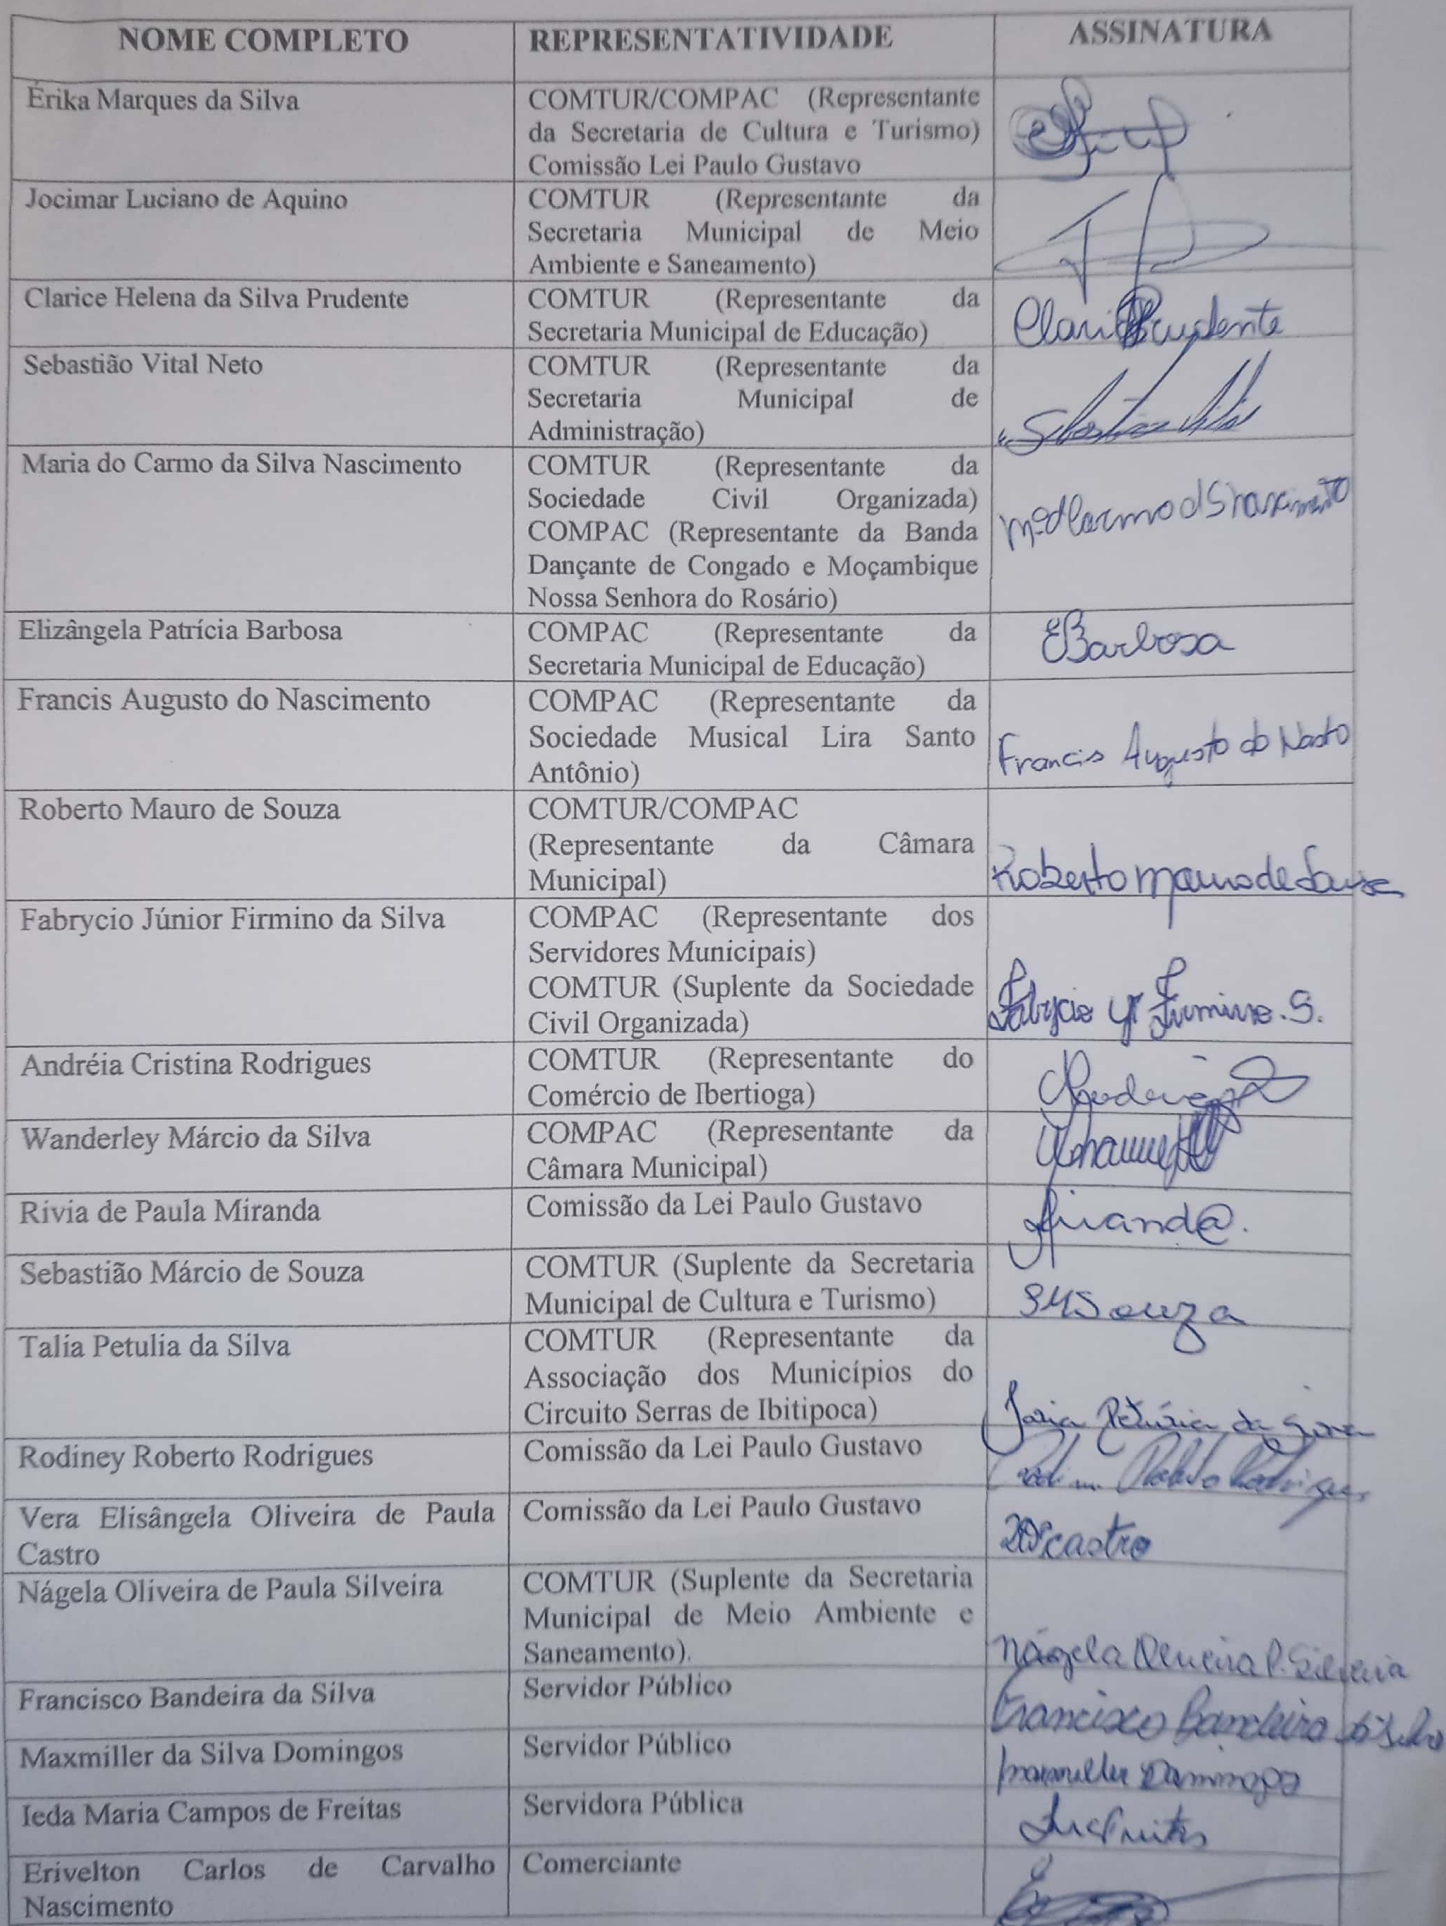 NOME COMPLETO REPRESENTATIVIDADE ASSINATURA
Érika Marques da Silva COMTUR/COMPAC (Representante
da Secretaria de Cultura e Turismo)
Comissão Lei Paulo Gustavo
Jocimar Luciano de Aquino COMTUR (Representante da
Secretaria Municipal de Meio
Ambiente e Saneamento)
Clarice Helena da Silva Prudente COMTUR (Representante da
Secretaria Municipal de Educação) Prudente
Sebastião Vital Neto COMTUR (Representante da
Secretaria Municipal de
Administração)
Maria do Carmo da Silva Nascimento COMTUR (Representante da
Sociedade Civil Organizada)
COMPAC (Representante da Banda
Dançante de Congado e Moçambique
Nossa Senhora do Rosário)
Elizângela Patrícia Barbosa COMPAC (Representante da
Secretaria Municipal de Educação) EBarbosa
Francis Augusto do Nascimento COMPAC (Representante da
Sociedade Musical Lira Santo
Antônio) Francis Augusto do Nasto
Roberto Mauro de Souza COMTUR/COMPAC
(Representante da Câmara
Municipal) Roberto Mauro de Souza
Fabrycio Júnior Firmino da Silva COMPAC (Representante dos
Servidores Municipais)
COMTUR (Suplente da Sociedade
Civil Organizada) Fabrycio Jr Firmino. S.
Andréia Cristina Rodrigues COMTUR (Representante do
Comércio de Ibertioga)
Wanderley Márcio da Silva COMPAC (Representante da
Câmara Municipal)
Rívia de Paula Miranda Comissão da Lei Paulo Gustavo
Sebastião Márcio de Souza COMTUR (Suplente da Secretaria
Municipal de Cultura e Turismo) SMSouza
Talía Petulia da Silva COMTUR (Representante da
Associação dos Municípios do
Circuito Serras de Ibitipoca)
Rodiney Roberto Rodrigues Comissão da Lei Paulo Gustavo Roberto Rodrigues
Vera Elisângela Oliveira de Paula Comissão da Lei Paulo Gustavo
Castro castro
Nágela Oliveira de Paula Silveira COMTUR (Suplente da Secretaria
Municipal de Meio Ambiente e
Saneamento). Nágela Oliveira P. Silveira
Francisco Bandeira da Silva Servidor Público Francisco Bandeira da Silva
Maxmiller da Silva Domingos Servidor Público Maxmiller Domingos
Ieda Maria Campos de Freitas Servidora Pública
Erivelton Carlos de Carvalho Comerciante
Nascimento